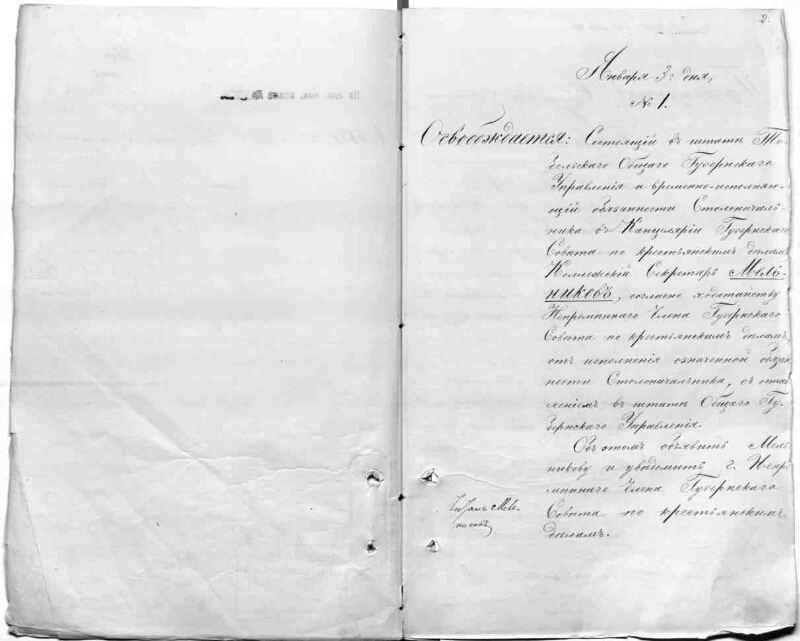 2.
Января 3 дня,
№ 1.
Освобождается: Состоящій въ штатѣ То-
больскаго Общаго Губернскаго
Управленія и временно-исполняю-
щій обязанности Столоначаль-
ника въ Канцеляріи Губернскаго
Совѣта по крестьянскимъ дѣламъ
Коллежскій Секретарь Мель-
никовъ, согласно ходатайству
Непремѣннаго Члена Губернскаго
Совѣта по крестьянскимъ дѣламъ,
отъ исполненія означенной обязан-
ности Столоначальника, съ остав-
леніемъ въ штатѣ Общаго Гу-
бернскаго Управленія.
Объ этомъ объявить Мель-
никову и увѣдомить г. Непре-
мѣннаго Члена Губернскаго
Совѣта по крестьянскимъ
дѣламъ.
Читалъ Мель-
никовъ